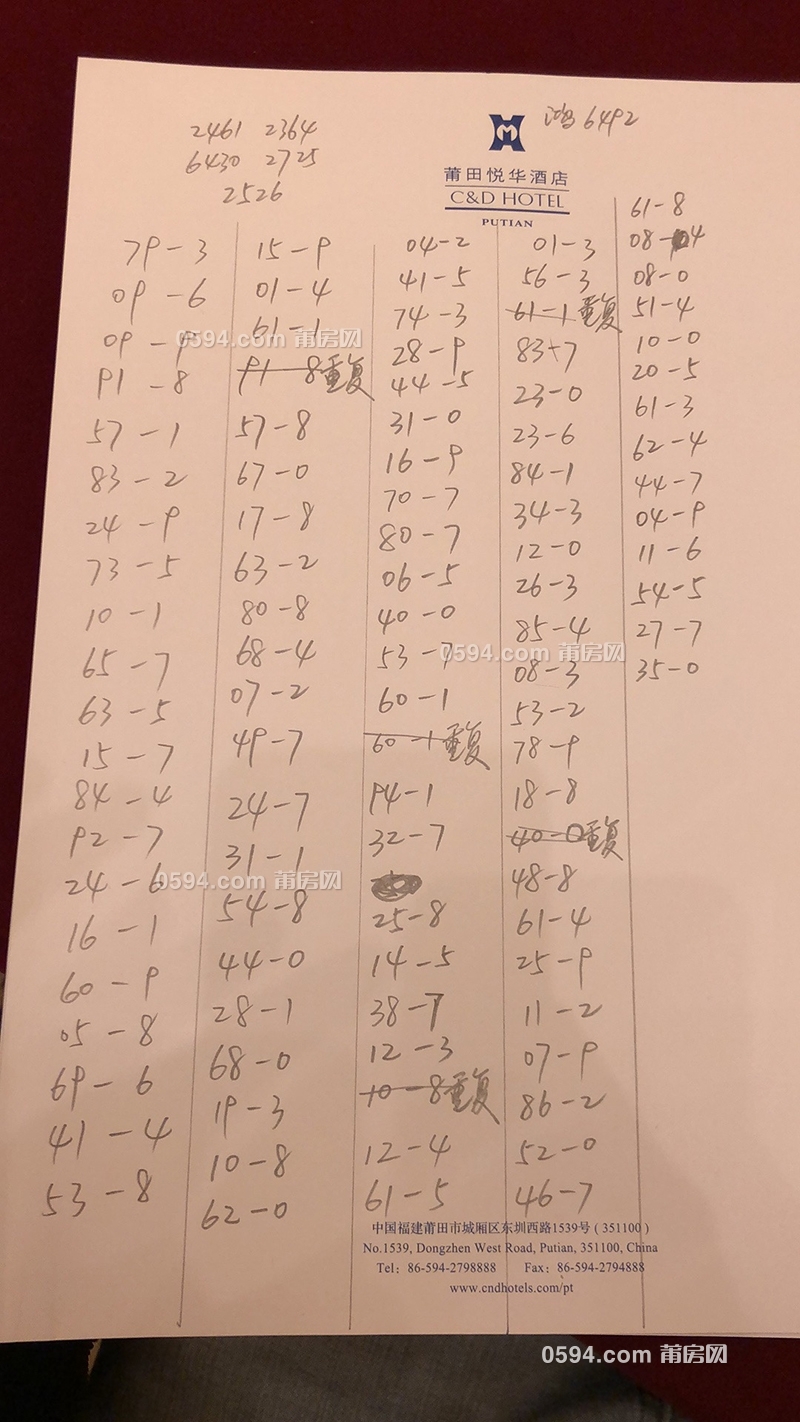 2461 2364
6430 2725
2526
鸿 6492
莆田悦华酒店
C&D HOTEL
PUTIAN
79-3
09-6
09-9
91-8
57-1
83-2
24-9
73-5
10-1
65-7
63-5
15-7
84-4
92-7
24-6
16-1
60-9
05-8
69-6
41-4
53-8
15-9
01-4
61-1
91-8重复
57-8
67-0
17-8
63-2
80-8
68-4
07-2
49-7
24-7
31-1
54-8
44-0
28-1
68-0
19-3
10-8
62-0
04-2
41-5
74-3
28-9
44-5
31-0
16-9
70-7
80-7
06-5
40-0
53-7
60-1
60-1重复
94-1
32-7
25-8
14-5
38-7
12-3
10-8重复
12-4
61-5
01-3
56-3
61-1重复
83-7
23-0
23-6
84-1
34-3
12-0
26-3
85-4
08-3
53-2
78-9
18-8
40-0重复
48-8
61-4
25-9
11-2
07-9
86-2
52-0
46-7
61-8
08-4
08-0
51-4
10-0
20-5
61-3
62-4
44-7
04-9
11-6
54-5
27-7
35-0
中国福建莆田市城厢区东圳西路1539号(351100)
No.1539, Dongzhen West Road, Putian, 351100, China
Tel: 86-594-2798888 Fax: 86-594-2794888
www.cndhotels.com/pt
0594.com 莆房网
0594.com 莆房网
0594.com 莆房网
0594.com 莆房网